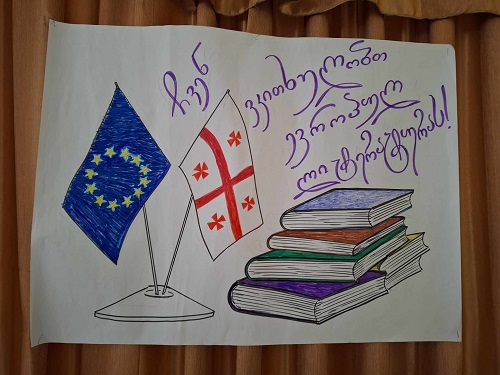 ჩვენ ვკითხულობთ
ევროპულ
ლიტერატურას!